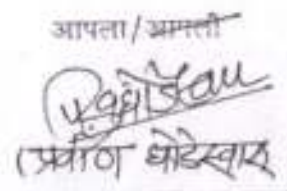 आपला/आपली
(प्रवीण घोडेस्वार